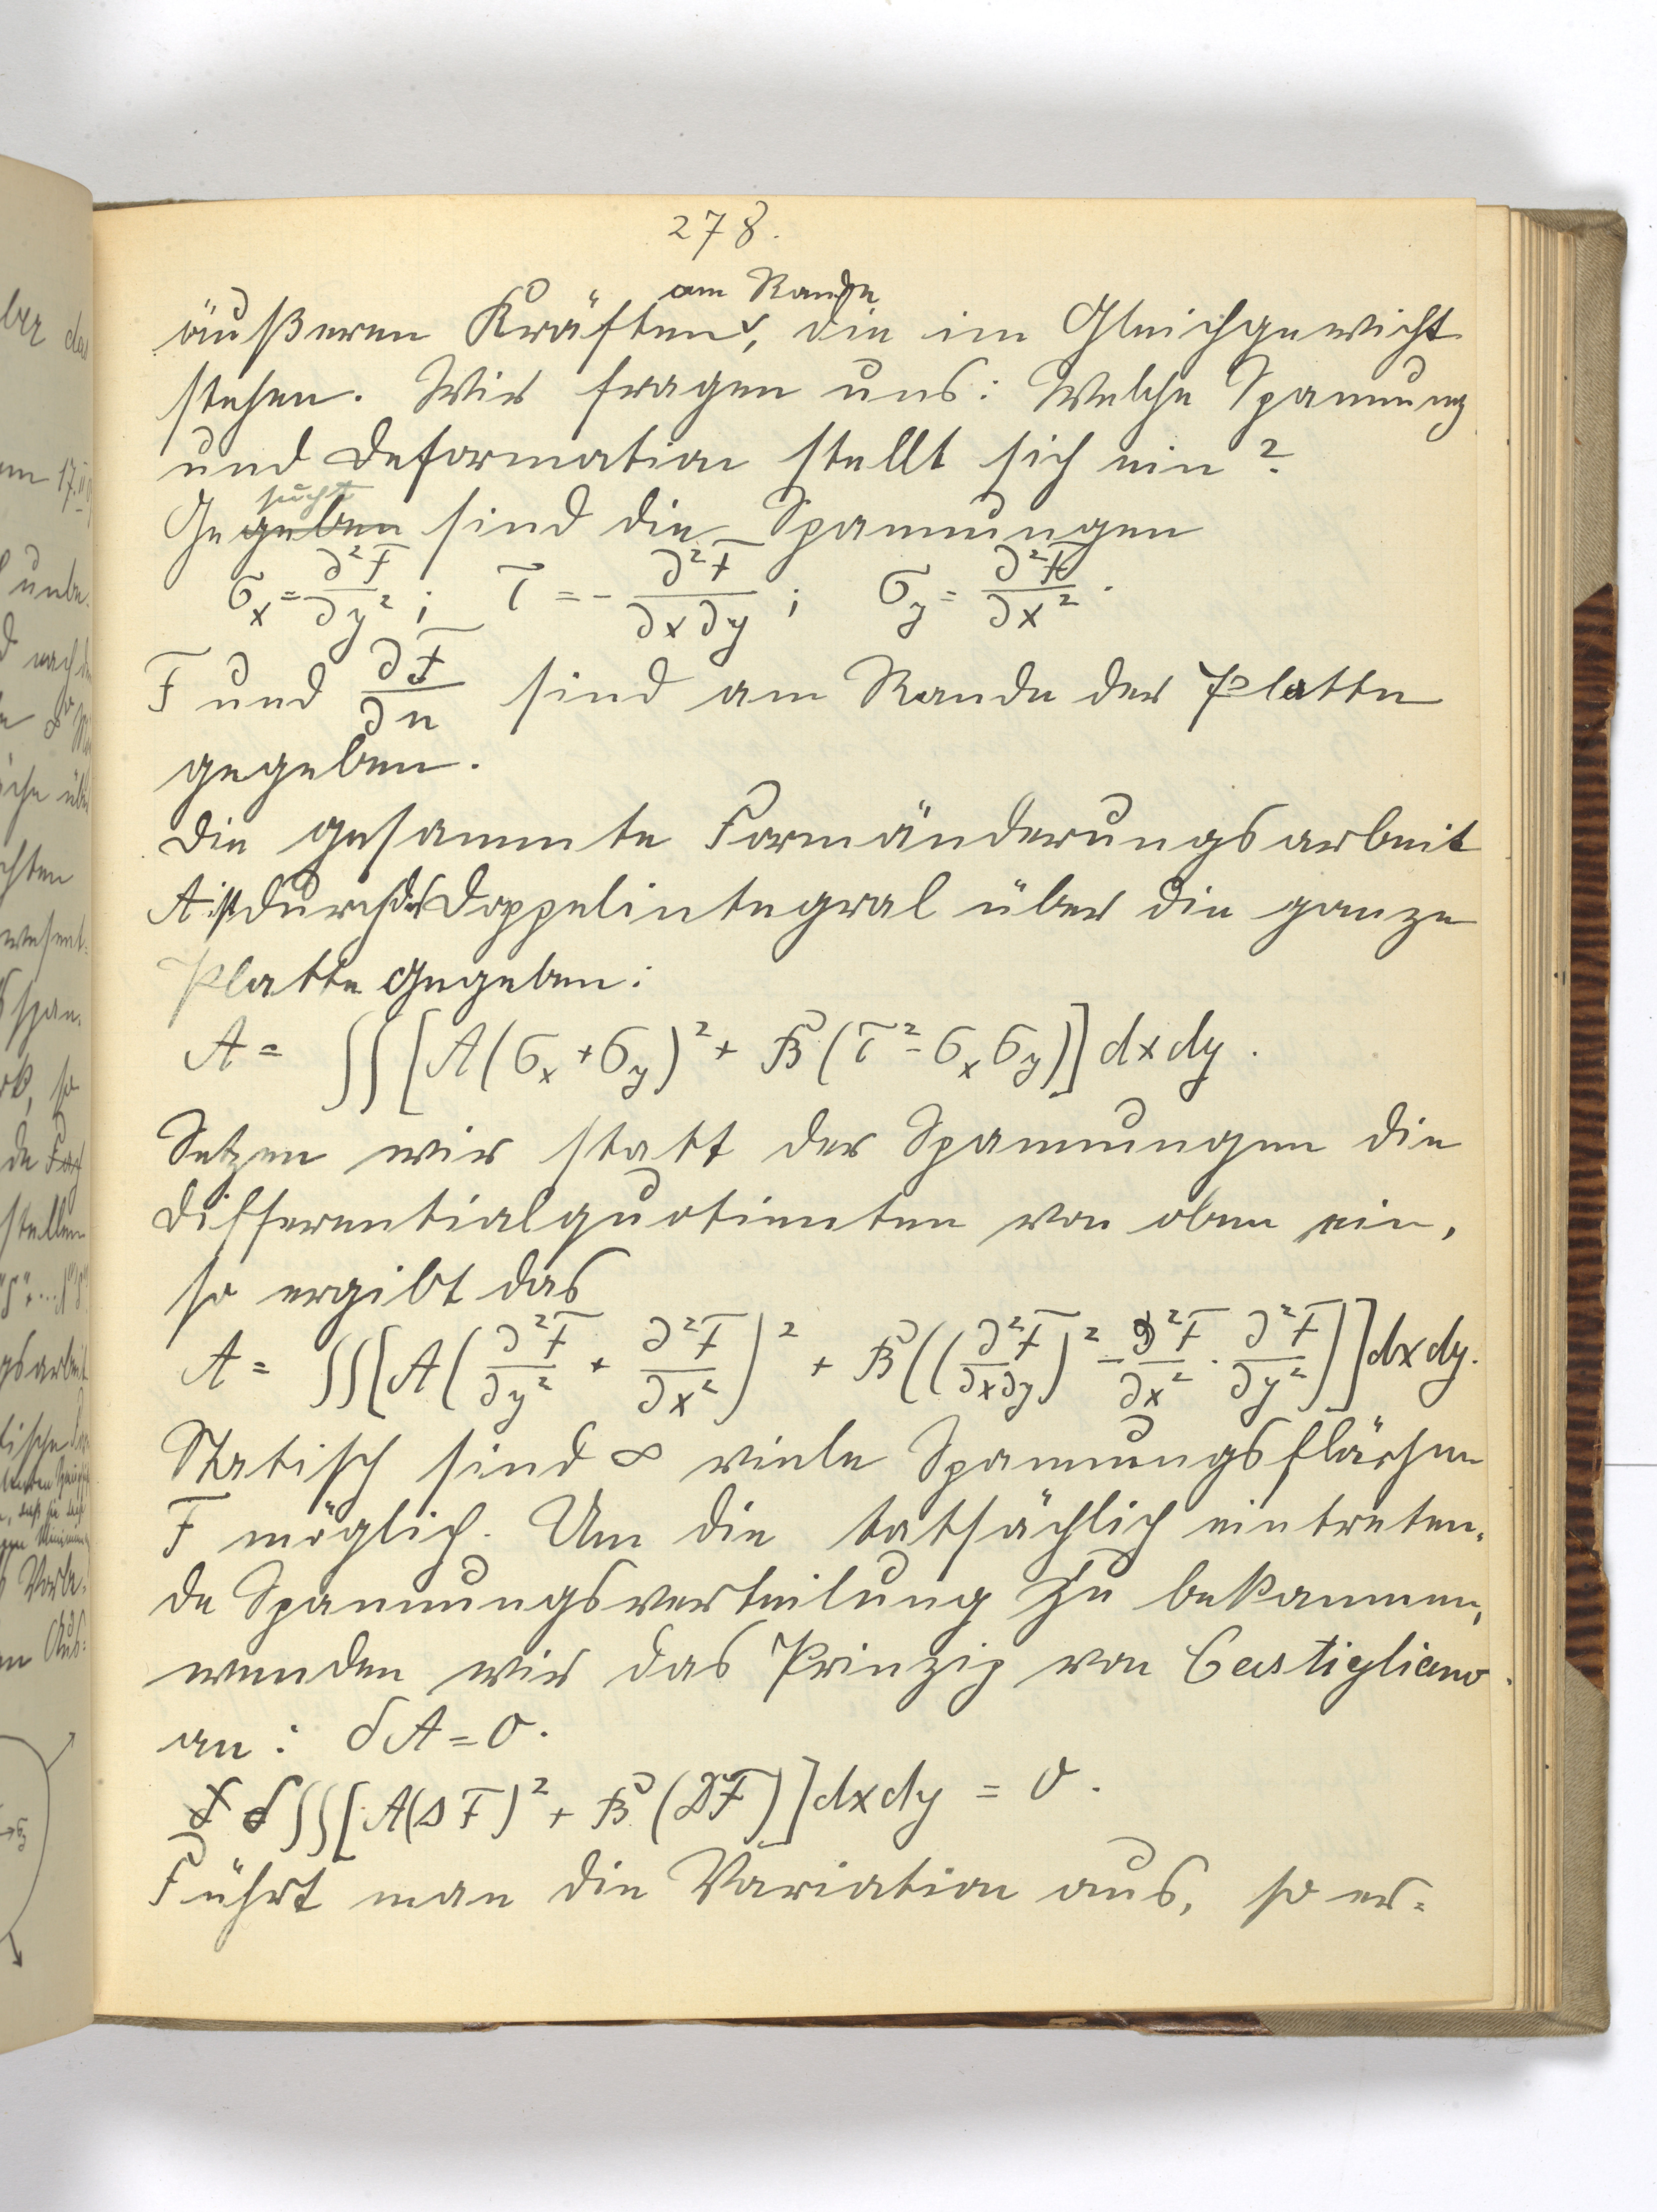 278.
äußeren Kräften am Rande, die im Gleichgewicht
stehen. Wir fragen uns: Welche Spannung
und Deformation stellt sich ein?
Gesucht sind die Spannungen
σ_x = ∂²F/∂y² ; τ = - ∂²F/∂x∂y ; σ_y = ∂²F/∂x² .
F und ∂F/∂n sind am Rande der Platte
gegeben.
Die gesammte Formänderungsarbeit
A ist durch das Doppelintegral über die ganze
Platte gegeben:
A = ∫∫ [A(σ_x + σ_y)² + B(τ² - σ_x σ_y)] dx dy .
Setzen wir statt der Spannungen die
Differentialquotienten von oben ein,
so ergibt das
A = ∫∫[A(∂²F/∂y² + ∂²F/∂x²)² + B((∂²F/∂x∂y)² - ∂²F/∂x² · ∂²F/∂y²)] dx dy.
Statisch sind ∞ viele Spannungsflächen
F möglich. Um die tatsächlich eintreten-
de Spannungsverteilung zu bekommen,
wenden wir das Prinzip von Castigliano
an: δA = 0.
δ∫∫[A(ΔF)² + B(DF)] dx dy = 0.
Führt man die Variation aus, so er-